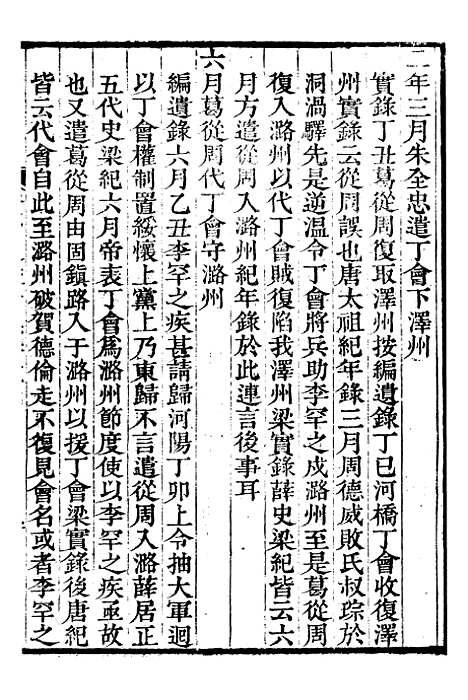 二年三月朱全忠遣丁會下澤州
實錄丁丑葛從周復取澤州按編遺錄丁巳河橋丁會收復澤
州實錄云從周誤也唐太祖紀年錄三月周德威敗氏叔琮於
洞渦驛先是逆溫令丁會將兵助李罕之戍潞州至是葛從周
復入潞州以代丁會賊復陷我澤州梁實錄薛史梁紀皆云六
月方遣從周入潞州紀年錄於此連言後事耳
六月葛從周代丁會守潞州
編遺錄六月乙丑李罕之疾甚請歸河陽丁卯上令抽大軍迴
以丁會權制置綏懷上黨上乃東歸不言遣從周入潞薛居正
五代史梁紀六月帝表丁會爲潞州節度使以李罕之疾亟故
也又遣葛從周由固鎮路入于潞州以援丁會梁實錄後唐紀
皆云代會自此至潞州破賀德倫走不復見會名或者李罕之